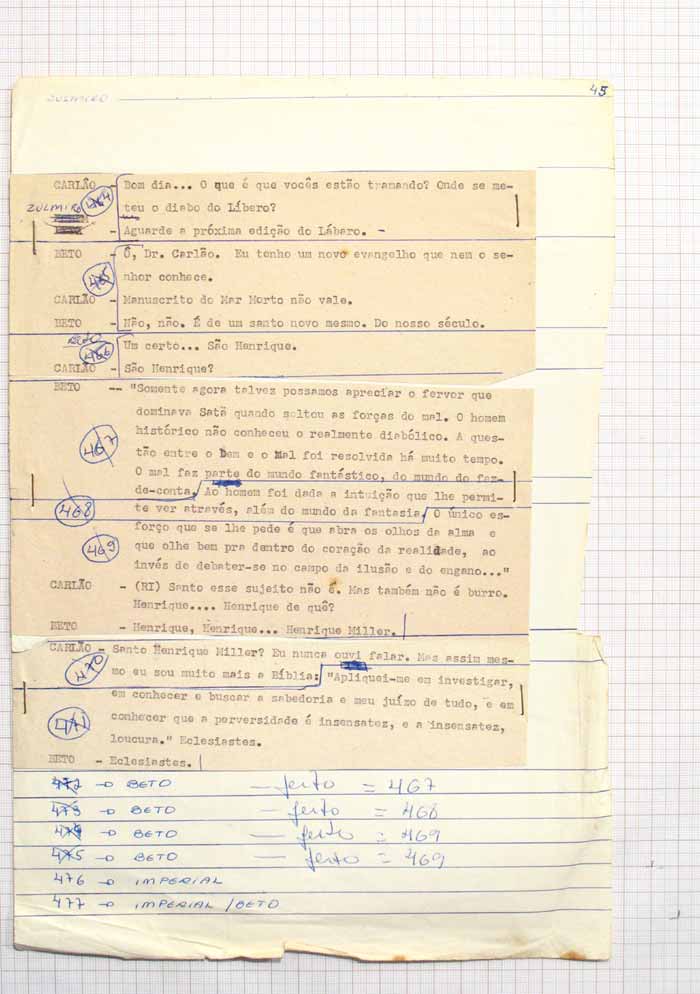 ZULMIRO
45
CARLÃO - Bom dia... O que é que vocês estão tramando? Onde se me-
ZULMIRO 464 teu o diabo do Líbero?
- Aguarde a próxima edição do Lábaro. -
BETO - Ô, Dr. Carlão. Eu tenho um novo evangelho que nem o se-
465 nhor conhece.
CARLÃO - Manuscrito do Mar Morto não vale.
BETO - Não, não. É de um santo novo mesmo. Do nosso século.
BETO 466 Um certo... São Henrique.
CARLÃO - São Henrique?
BETO -- "Somente agora talvez possamos apreciar o fervor que
dominava Satã quando soltou as forças do mal. O homem
histórico não conheceu o realmente diabólico. A ques-
467 tão entre o Bem e o Mal foi resolvida há muito tempo.
O mal faz parte do mundo fantástico, do mundo do faz-
de-conta. Ao homem foi dada a intuição que lhe permi-
468 te ver através, além do mundo da fantasia. O único es-
forço que se lhe pede é que abra os olhos da alma e
469 que olhe bem pra dentro do coração da realidade, ao
invés de debater-se no campo da ilusão e do engano..."
CARLÃO - (RI) Santo esse sujeito não é. Mas também não é burro.
Henrique.... Henrique de quê?
BETO - Henrique, Henrique... Henrique Miller.
CARLÃO - Santo Henrique Miller? Eu nunca ouvi falar. Mas assim mes-
470 mo eu sou muito mais a Bíblia: "Apliquei-me em investigar,
em conhecer e buscar a sabedoria e meu juízo de tudo, e em
471 conhecer que a perversidade é insensatez, e a insensatez,
loucura." Eclesiastes.
BETO - Eclesiastes.
472 → BETO — feito = 467
473 → BETO — feito = 468
474 → BETO — feito = 469
475 → BETO — feito = 469
476 → IMPERIAL
477 → IMPERIAL / BETO